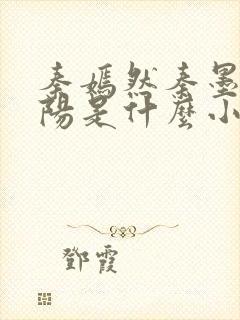 秦嫣然秦墨
陽是什麼小
鄧霞